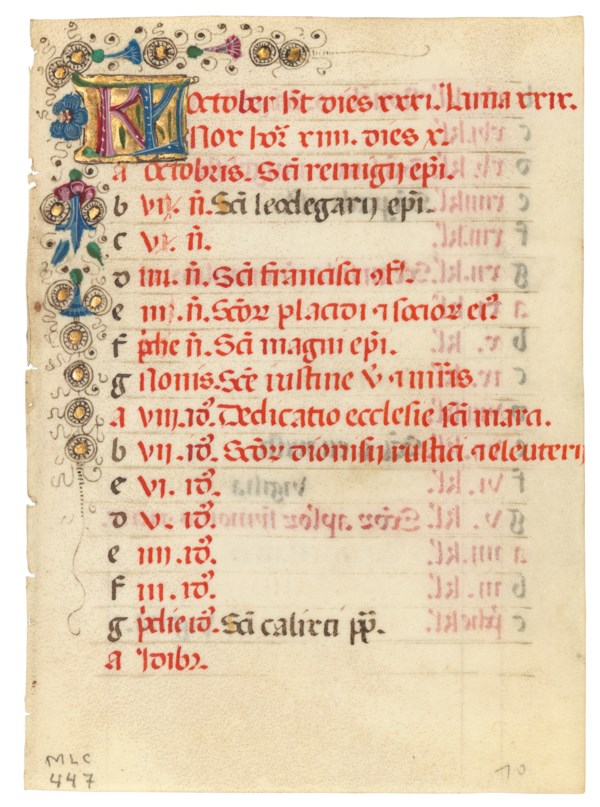 KL October hꝫt dies xxxi. Luna xxix.
Nox hoꝝ xiiii. dies x.
a octobris. Scī remigij epī.
b vi. n̄. Scī leodegarij epī.
c v. n̄.
d iiii. n̄. Scī francisci ꝯf.
e iii. n̄. Scōꝝ placidi ⁊ socioꝝ eiꝰ
f pⁱdie n̄. Scī magni epī.
g Nonis. Scē iustine v̄. ⁊ mr̄is.
a viii. id'. Dedicatio ecclesie scī mara.
b vii. id'. Scōꝝ dionisij rustici ⁊ eleuterij
c vi. id'.
d v. id'.
e iiii. id'.
f iii. id'.
g pⁱdie id'. Scī calixti pp̄.
a Idibꝰ.
MLC
447
10